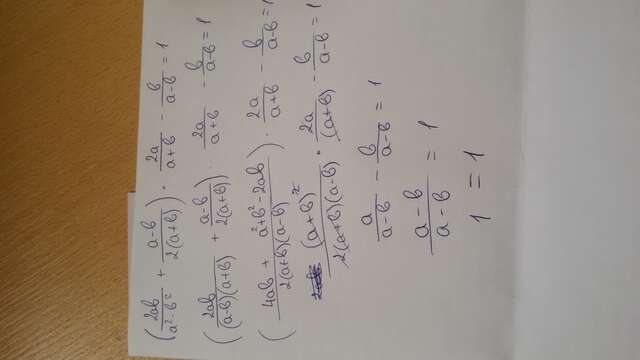 (2ab/(a²-b²) + (a-b)/(2(a+b))) · 2a/(a+b) - b/(a-b) = 1
(2ab/((a-b)(a+b)) + (a-b)/(2(a+b))) · 2a/(a+b) - b/(a-b) = 1
((4ab + a²+b²-2ab)/(2(a+b)(a-b))) · 2a/(a+b) - b/(a-b) = 1
(a+b)²/(2(a+b)(a-b)) · 2a/(a+b) - b/(a-b) = 1
a/(a-b) - b/(a-b) = 1
(a-b)/(a-b) = 1
1 = 1